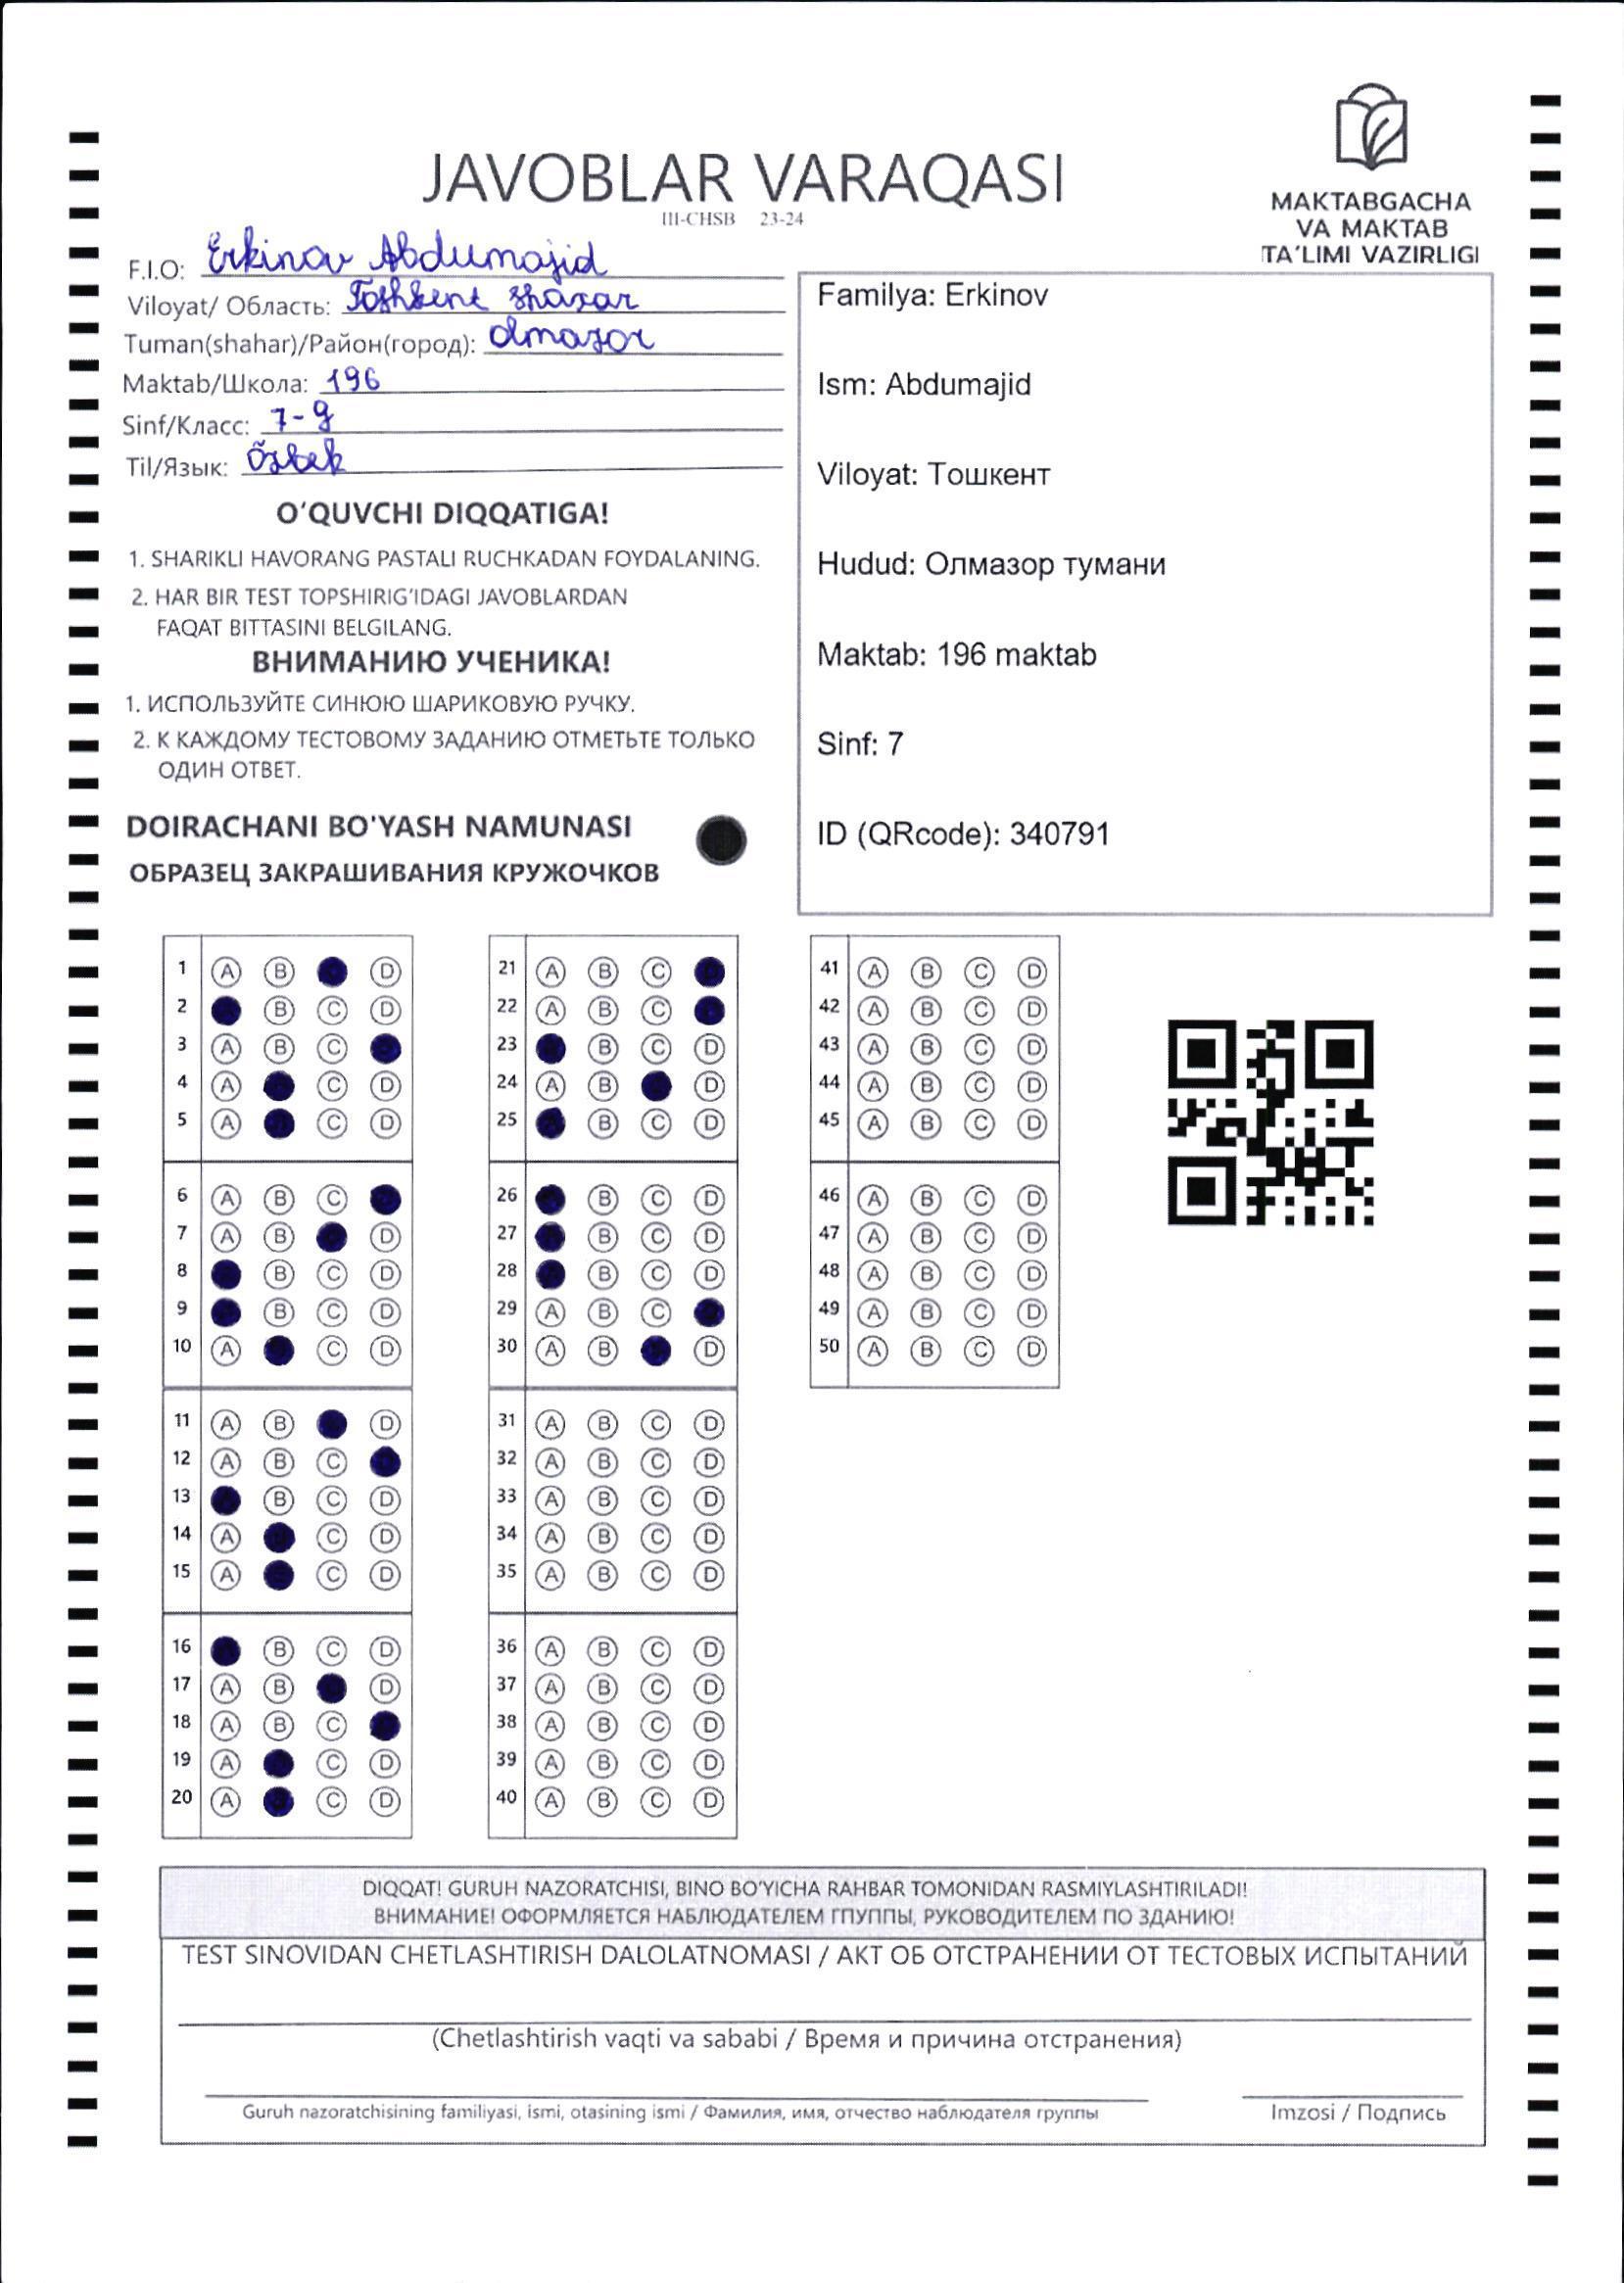 JAVOBLAR VARAQASI
III-CHSB 23-24
MAKTABGACHA
VA MAKTAB
TA'LIMI VAZIRLIGI
F.I.O: Erkinov Abdumajid
Viloyat/ Область: Toshkent shaxar
Tuman(shahar)/Район(город): Olmazor
Maktab/Школа: 196
Sinf/Класс: 7-g
Til/Язык: Õzbek
O'QUVCHI DIQQATIGA!
1. SHARIKLI HAVORANG PASTALI RUCHKADAN FOYDALANING.
2. HAR BIR TEST TOPSHIRIG'IDAGI JAVOBLARDAN
FAQAT BITTASINI BELGILANG.
ВНИМАНИЮ УЧЕНИКА!
1. ИСПОЛЬЗУЙТЕ СИНЮЮ ШАРИКОВУЮ РУЧКУ.
2. К КАЖДОМУ ТЕСТОВОМУ ЗАДАНИЮ ОТМЕТЬТЕ ТОЛЬКО
ОДИН ОТВЕТ.
DOIRACHANI BO'YASH NAMUNASI
ОБРАЗЕЦ ЗАКРАШИВАНИЯ КРУЖОЧКОВ
Familya: Erkinov
Ism: Abdumajid
Viloyat: Тошкент
Hudud: Олмазор тумани
Maktab: 196 maktab
Sinf: 7
ID (QRcode): 340791
1 A B D
2 B C D
3 A B C
4 A C D
5 A C D
6 A B C
7 A B D
8 B C D
9 B C D
10 A C D
11 A B D
12 A B C
13 B C D
14 A C D
15 A C D
16 B C D
17 A B D
18 A B C
19 A C D
20 A C D
21 A B C
22 A B C
23 B C D
24 A B D
25 B C D
26 B C D
27 B C D
28 B C D
29 A B C
30 A B D
31 A B C D
32 A B C D
33 A B C D
34 A B C D
35 A B C D
36 A B C D
37 A B C D
38 A B C D
39 A B C D
40 A B C D
41 A B C D
42 A B C D
43 A B C D
44 A B C D
45 A B C D
46 A B C D
47 A B C D
48 A B C D
49 A B C D
50 A B C D
DIQQAT! GURUH NAZORATCHISI, BINO BO'YICHA RAHBAR TOMONIDAN RASMIYLASHTIRILADI!
ВНИМАНИЕ! ОФОРМЛЯЕТСЯ НАБЛЮДАТЕЛЕМ ГПУППЫ, РУКОВОДИТЕЛЕМ ПО ЗДАНИЮ!
TEST SINOVIDAN CHETLASHTIRISH DALOLATNOMASI / АКТ ОБ ОТСТРАНЕНИИ ОТ ТЕСТОВЫХ ИСПЫТАНИЙ
(Chetlashtirish vaqti va sababi / Время и причина отстранения)
Guruh nazoratchisining familiyasi, ismi, otasining ismi / Фамилия, имя, отчество наблюдателя группы
Imzosi / Подпись